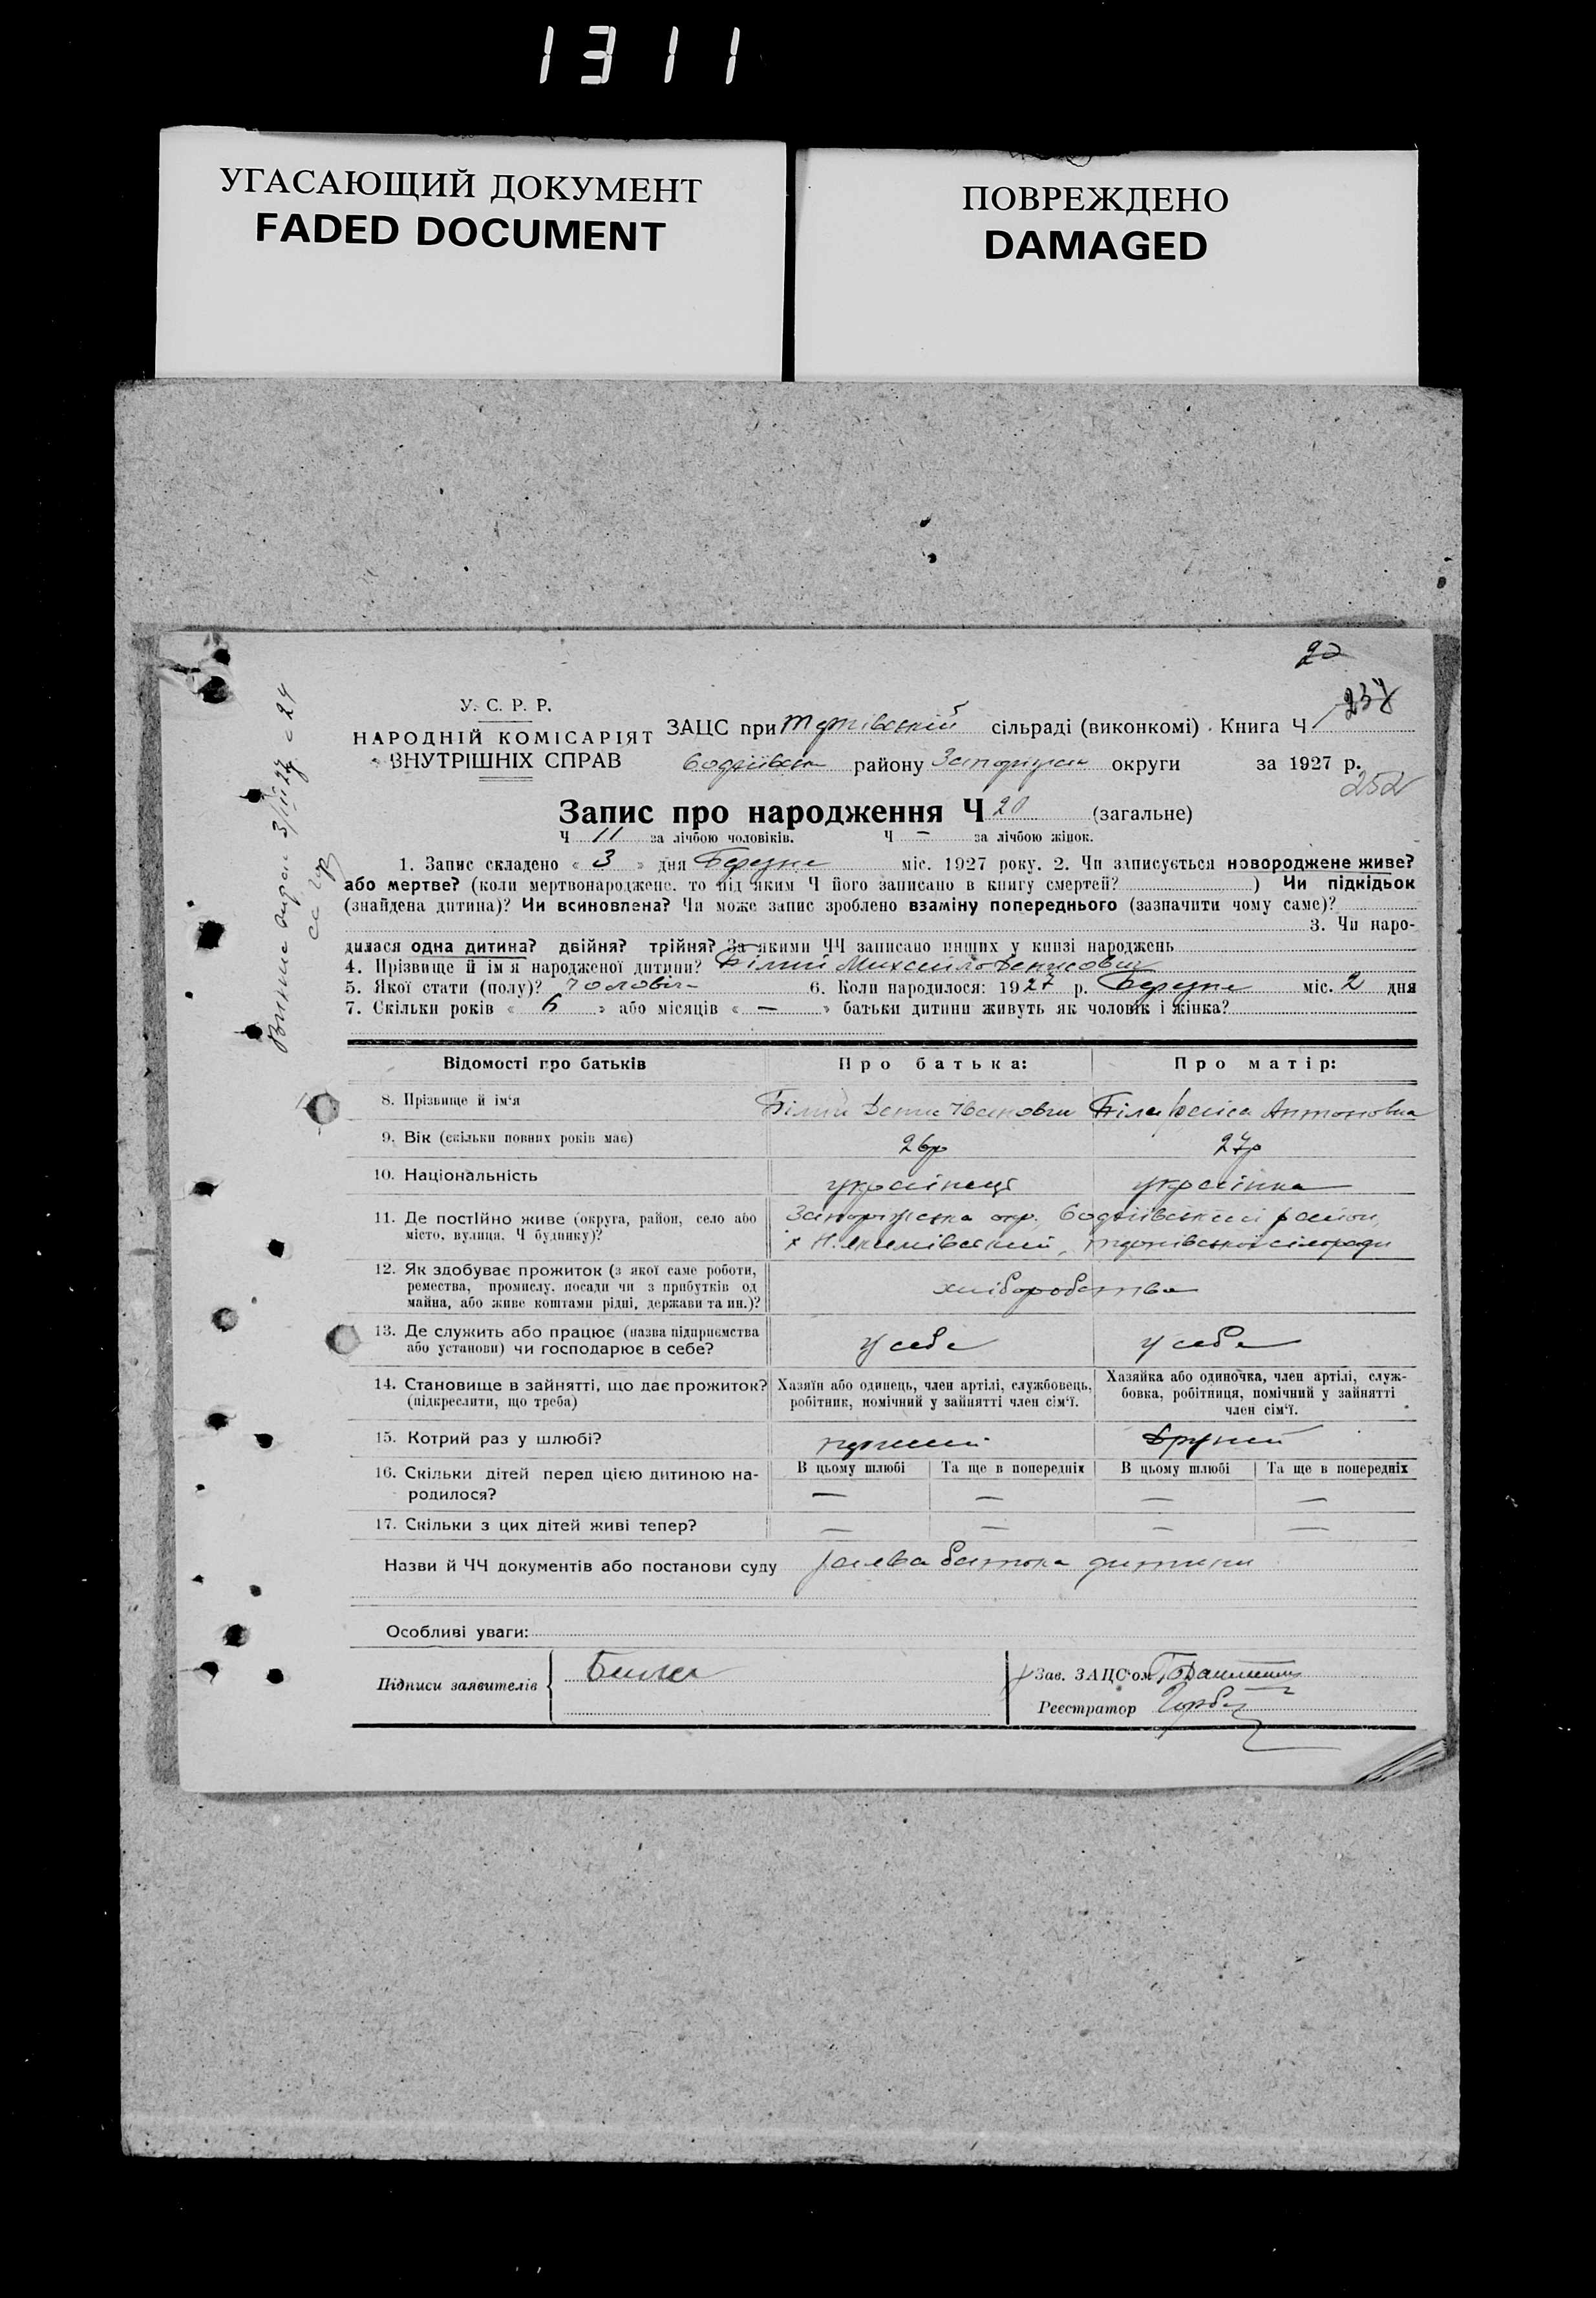 1311
УГАСАЮЩИЙ ДОКУМЕНТ
FADED DOCUMENT
ПОВРЕЖДЕНО
DAMAGED
20
237
У. С. Р. Р.
НАРОДНІЙ КОМІСАРІЯТ
ВНУТРІШНІХ СПРАВ
ЗАЦС при сільраді (виконкомі) . Книга Ч
району округи за 1927 р.
252
Запис про народження Ч 20 (загальне)
Ч 11 за лічбою чоловіків. Ч — за лічбою жінок.
1. Запис складено « 3 » дня Березня міс. 1927 року. 2. Чи записується новороджене живе?
або мертве? (коли мертвонароджене, то під яким Ч його записано в книгу смертей? ) Чи підкідьок
(знайдена дитина)? Чи всиновлена? Чи може запис зроблено взаміну попереднього (зазначити чому саме)?
3. Чи наро-
дилася одна дитина? двійня? трійня? За якими ЧЧ записано инших у книзі народжень
4. Прізвище й ім'я народженої дитини? Білий Михайло Денисович
5. Якої стати (полу)? 6. Коли народилося: 1927 р. Березня міс. 2 дня
7. Скільки років « 6 » або місяців « — » батьки дитини живуть як чоловік і жінка?
Відомості про батьків Про батька: Про матір:
8. Прізвище й ім'я Білий Денис Іванович Біла Антоновна
9. Вік (скільки повних років має) 26р 27р
10. Національність українець українка
11. Де постійно живе (округа, район, село або
місто, вулиця, Ч будинку)?
Запоріжська окр. район,
12. Як здобуває прожиток (з якої саме роботи,
ремества, промислу, посади чи з прибутків од
майна, або живе коштами рідні, держави та ин.)?
хліборобства
13. Де служить або працює (назва підприємства
або установи) чи господарює в себе?
у себе у себе
14. Становище в зайнятті, що дає прожиток?
(підкреслити, що треба)
Хазяїн або одинець, член артілі, службовець,
робітник, помічний у зайнятті член сім'ї.
Хазяйка або одиночка, член артілі, служ-
бовка, робітниця, помічний у зайнятті
член сім'ї.
15. Котрий раз у шлюбі? перший другий
16. Скільки дітей перед цією дитиною на-
родилося?
В цьому шлюбі Та ще в попередніх В цьому шлюбі Та ще в попередніх
— — — —
17. Скільки з цих дітей живі тепер? — — — —
Назви й ЧЧ документів або постанови суду заява батька дитини
Особливі уваги:
Підписи заявителів
Зав. ЗАЦС'ом
Реєстратор